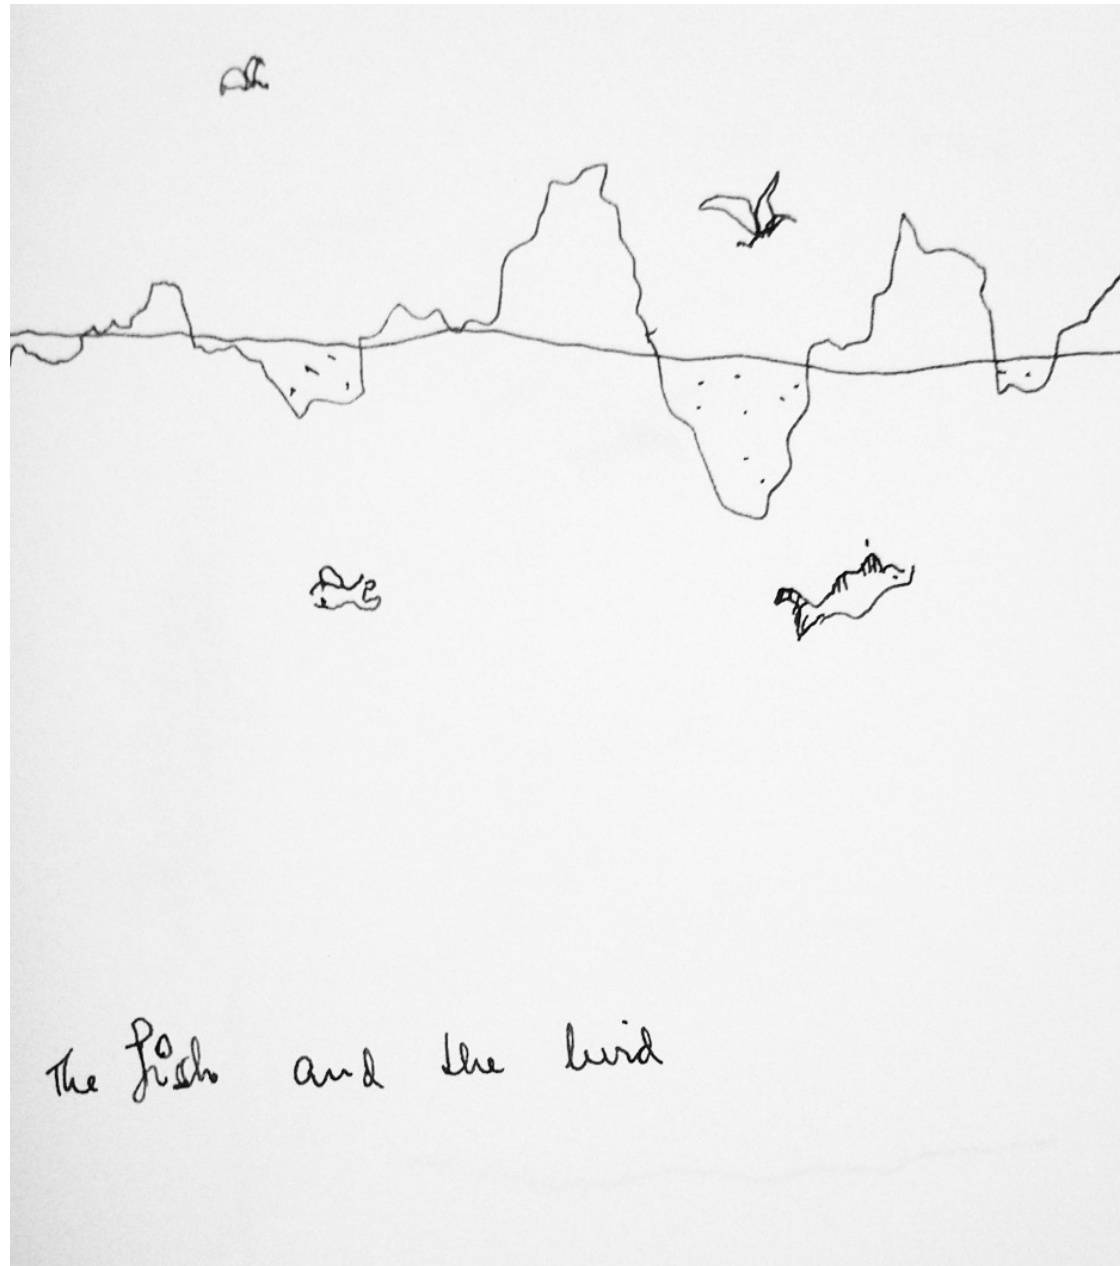 The fish and the bird